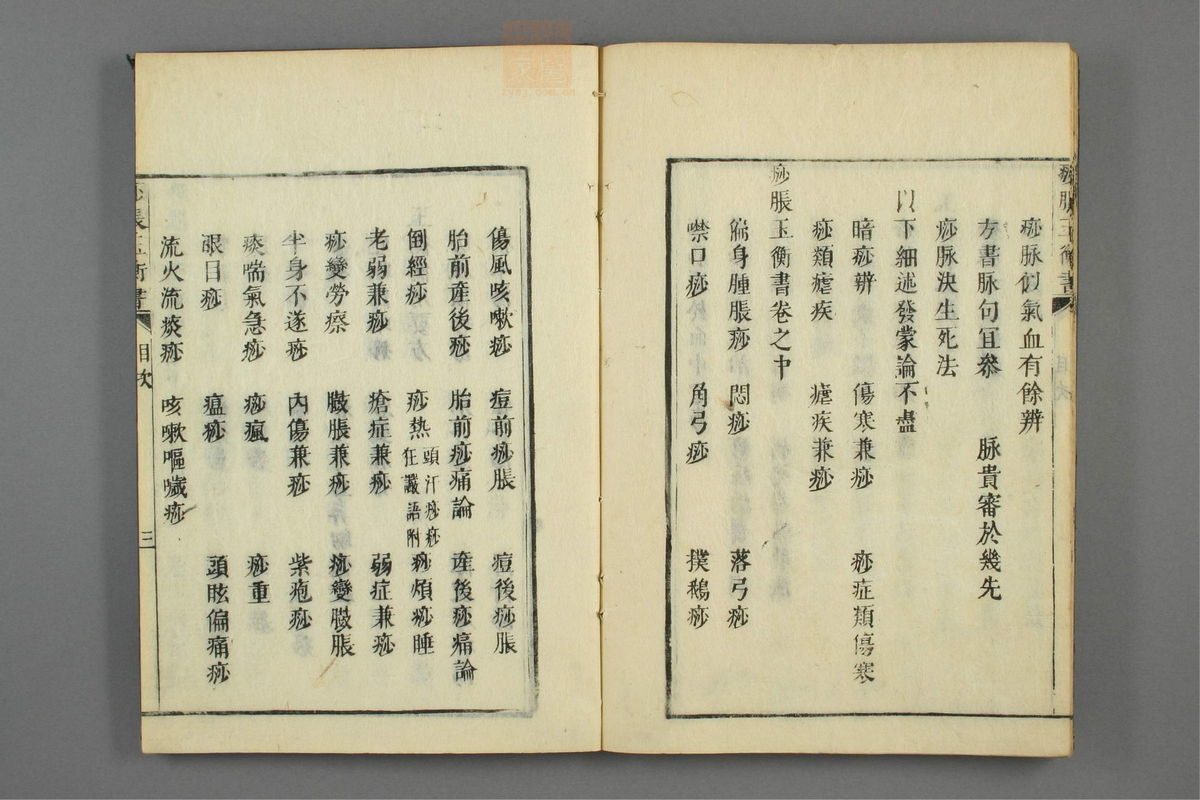 痧脹玉衡書
痧脉似氣血有餘辨
方書脉句宜參　脉貴審於幾先
痧脉決生死法
以下細述發蒙論不盡
暗痧辨　傷寒兼痧　痧症類傷寒
痧類瘧疾　瘧疾兼痧
痧脹玉衡書卷之中
徧身腫脹痧　悶痧　落弓痧
噤口痧　角弓痧　撲鵝痧
傷風咳嗽痧　痘前痧脹　痘後痧脹
胎前產後痧　胎前痧痛論　產後痧痛論
倒經痧　痧熱　頭汗痧痧狂譫語附　痧煩痧睡
老弱兼痧　瘡症兼痧　弱症兼痧
痧變勞瘵　臌脹兼痧　痧變臌脹
半身不遂痧　內傷兼痧　紫疱痧
痰喘氣急痧　痧瘋　痧重
眼目痧　瘟痧　頭眩偏痛痧
流火流痰痧　咳嗽嘔噦痧
痧脹玉衡書　目次　三